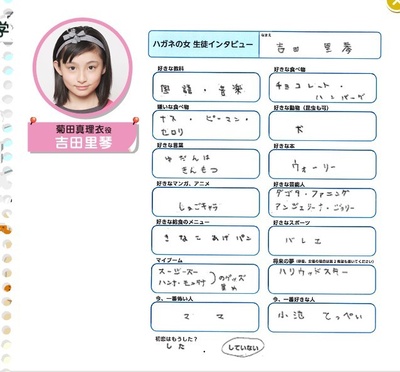 学
菊田真理衣役
吉田里琴
ハガネの女 生徒インタビュー
なまえ
吉田 里琴
好きな教科
国語・音楽
好きな食べ物
チョコレート・
ハンバーグ
嫌いな食べ物
ナス・ピーマン・
セロリ
好きな動物(昆虫も可)
犬
好きな言葉
ゆだんは
きんもつ
好きな本
ウォーリー
好きなマンガ、アニメ
しゅごキャラ
好きな芸能人
ダコタ・ファニング
アンジェリーナ・ジョリー
好きな給食のメニュー
きなこあげパン
好きなスポーツ
バレエ
マイブーム
スージーズー
ハンナ・モンタナ
のグッズ
集め
将来の夢
ハリウッドスター
今、一番怖い人
ママ
今、一番好きな人
小池 てっぺい
初恋はもうした?
した . していない